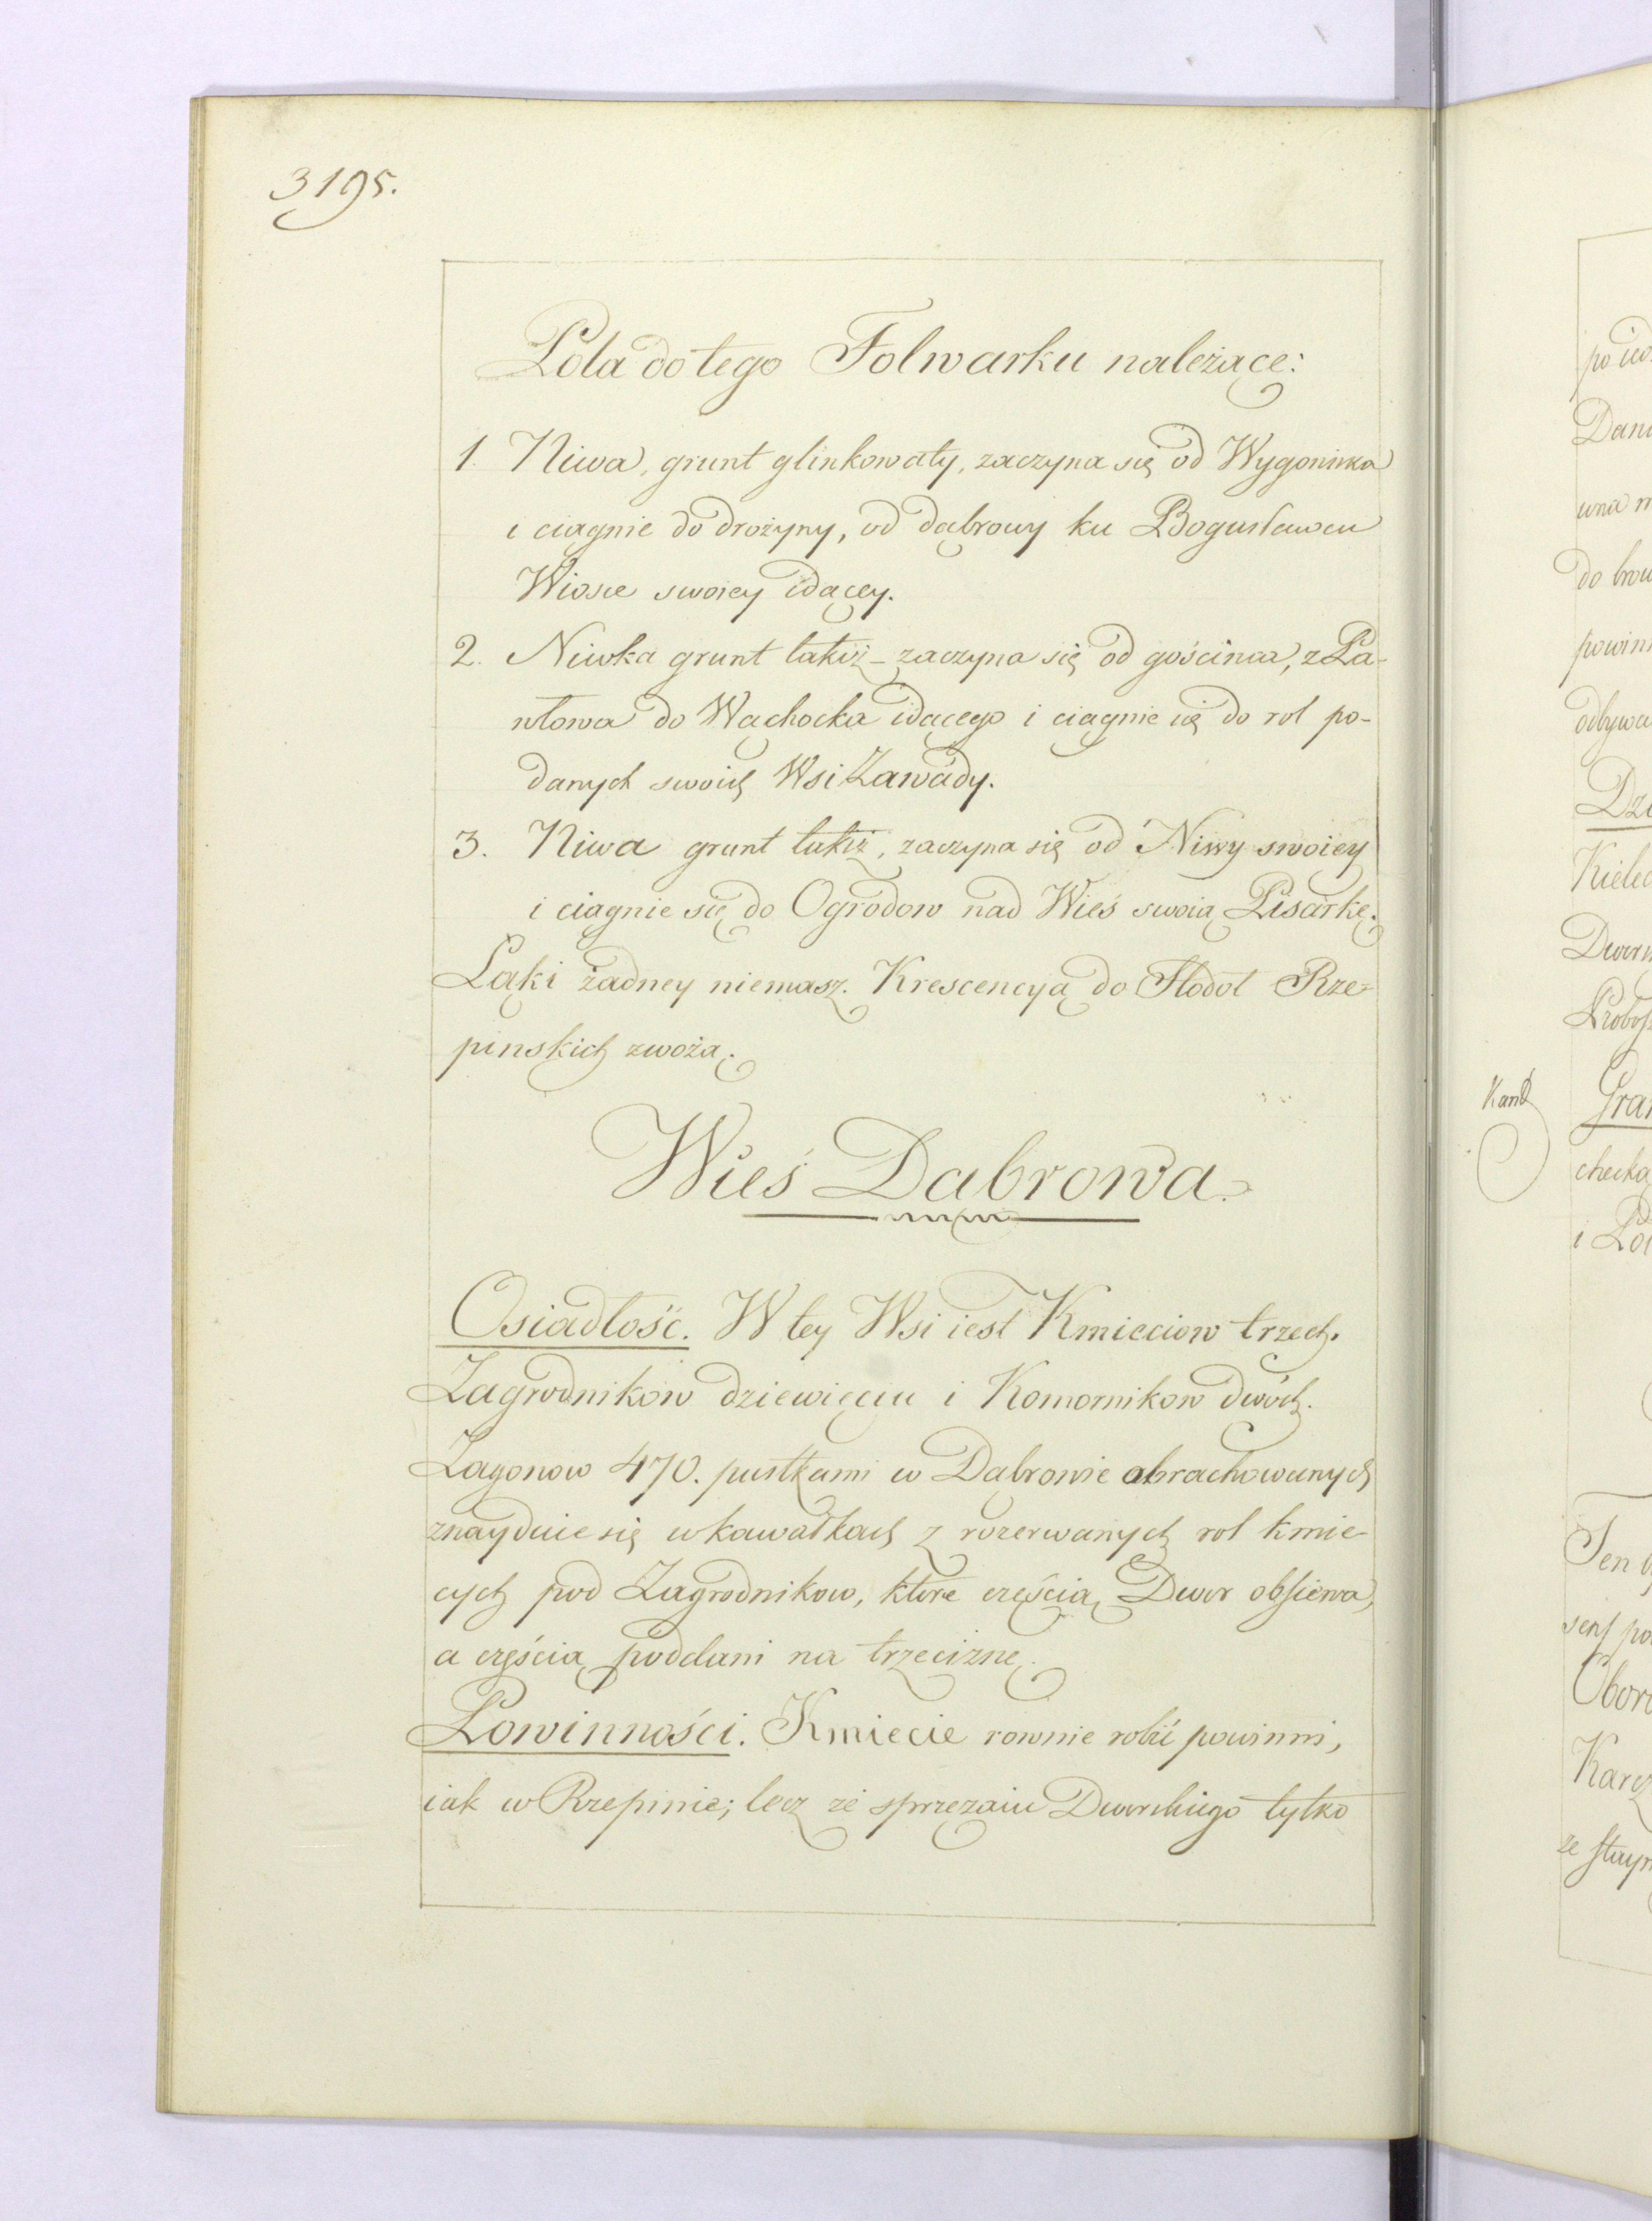 3195.
Pola do tego Folwarku należące:
1. Niwa, grunt glinkowaty, zaczyna się od Wygoninka
i ciągnie do drożyny, od dąbrowy ku Bogusławcu
Wiosce swoiey idącey.
2. Niwka grunt takiż – zaczyna się od gościnca, z Pa-
włowa do Wąchocka idącego i ciągnie się do rol po-
danych swoich Wsi Zawady.
3. Niwa grunt takiż, zaczyna się od Niwy swoiey
i ciągnie się do Ogrodow nad Wieś swoią Pisarkę.
Łąki żadney niemasz. Krescencyą do Stodoł Rze-
pinskich zwożą.
Wieś Dąbrowa.
Osiadłość. W tey Wsi iest Kmieciow trzech.
Zagrodnikow dziewięciu i Komornikow dwóch.
Zagonow 470. pustkami w Dąbrowie obrachowanych
znayduie się w kawałkach z rozerwanych rol kmie-
cych pod Zagrodnikow, ktore częścią Dwor obsiewa,
a częścią poddani na trzeciznę.
Powinności. Kmiecie rownie robić powinni,
iak w Rzepinie; lecz ze sprzężaiu Dworskiego tylko
po ied
Dani
wna
do brow
powin
odbywa
Dzi
Kielec
Dwor
Probos
Kand
Gra
checka
i Po
Ten
Obor
Karcz
ze Stayn